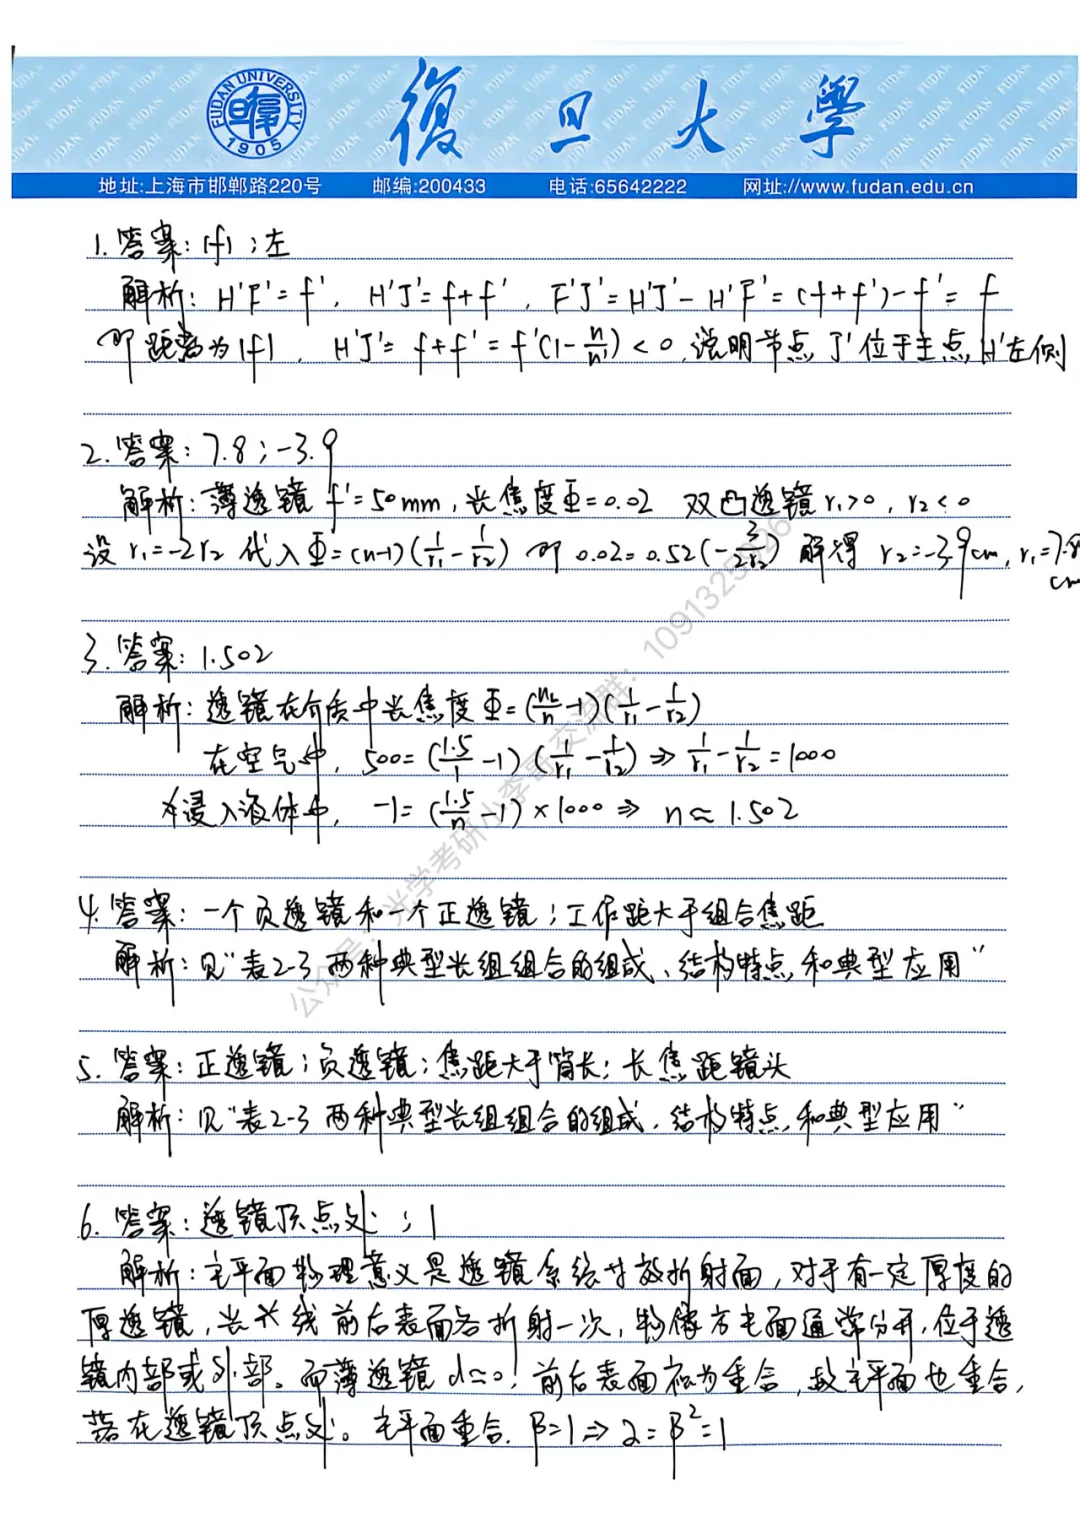 FUDAN UNIVERSITY 1905
復旦大學
地址:上海市邯郸路220号 邮编:200433 电话:65642222 网址://www.fudan.edu.cn
1. 答案: |f| ; 左
解析: H'F'=f', H'J'=f+f', F'J'=H'J'-H'F'=(f+f')-f'=f
即距离为|f|, H'J'=f+f'=f'(1-n/n')<0, 说明节点J'位于主点H'左侧
2. 答案: 7.8 ; -3.9
解析: 薄透镜 f'=50mm, 光焦度Φ=0.02 双凸透镜 r₁>0, r₂<0
设 r₁=-2r₂ 代入Φ=(n-1)(1/r₁-1/r₂) 即 0.02=0.52(-3/2r₂) 解得 r₂=-3.9cm, r₁=7.8cm
3. 答案: 1.502
解析: 透镜在介质中光焦度Φ=(n_L/n-1)(1/r₁-1/r₂)
在空气中, 500=(1.5/1-1)(1/r₁-1/r₂)⇒1/r₁-1/r₂=1000
浸入液体中, -1=(1.5/n-1)×1000⇒n≈1.502
4. 答案: 一个负透镜和一个正透镜; 工作距大于组合焦距
解析: 见"表2-3 两种典型光组组合的组成、结构特点和典型应用"
5. 答案: 正透镜; 负透镜; 焦距大于筒长; 长焦距镜头
解析: 见"表2-3 两种典型光组组合的组成、结构特点和典型应用"
6. 答案: 透镜顶点处 ; 1
解析: 主平面物理意义是透镜系统等效折射面, 对于有一定厚度的
厚透镜, 光线前后表面各折射一次, 物像方主面通常分开, 位于透
镜内部或外部。而薄透镜 d≈0, 前后表面视为重合, 故主平面也重合,
落在透镜顶点处。主平面重合, β=1⇒α=β²=1
公众号: 光学考研小李哥 交流群: 1091325926